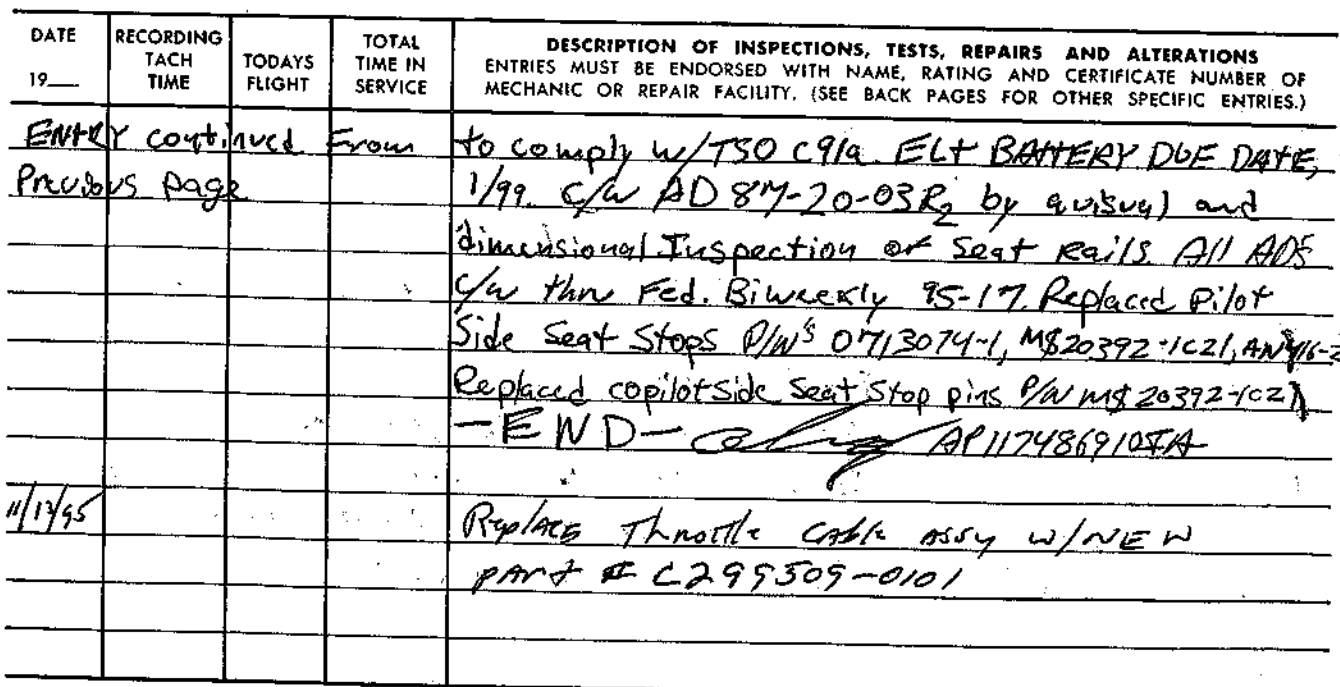 DATE
19___
RECORDING TACH TIME
TODAYS FLIGHT
TOTAL TIME IN SERVICE
DESCRIPTION OF INSPECTIONS, TESTS, REPAIRS AND ALTERATIONS
ENTRIES MUST BE ENDORSED WITH NAME, RATING AND CERTIFICATE NUMBER OF
MECHANIC OR REPAIR FACILITY. (SEE BACK PAGES FOR OTHER SPECIFIC ENTRIES.)
ENTRY continued From
Previous page
to comply w/TSO C91a. ELT BATTERY DUE DATE,
1/99. C/W AD 87-20-03R2 by a visual and
dimensional Inspection of Seat Rails. All ADS
c/w thru Fed. Biweekly 95-17. Replaced Pilot
Side Seat Stops P/N's 0713074-1, MS20392-1C21, AN416-2
Replaced copilot Side Seat Stop pins P/N MS20392-1C21
-END- AP117486910IA
11/13/95
Replace Throttle Cable Assy w/NEW
part # C299509-0101